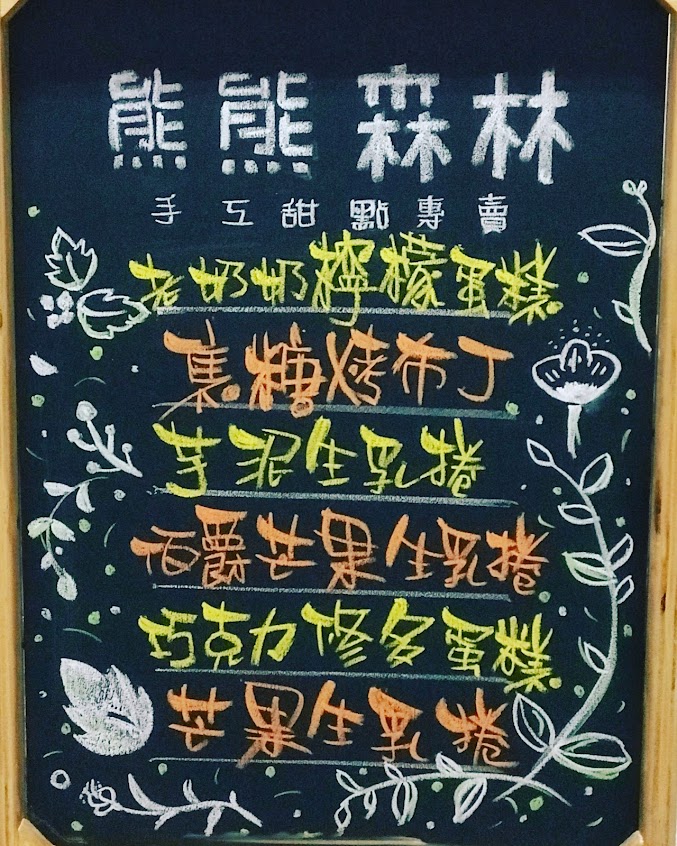 熊熊森林
手工甜點專賣
老奶奶檸檬蛋糕
焦糖烤布丁
芋泥生乳捲
伯爵芒果生乳捲
巧克力修多蛋糕
芒果生乳捲